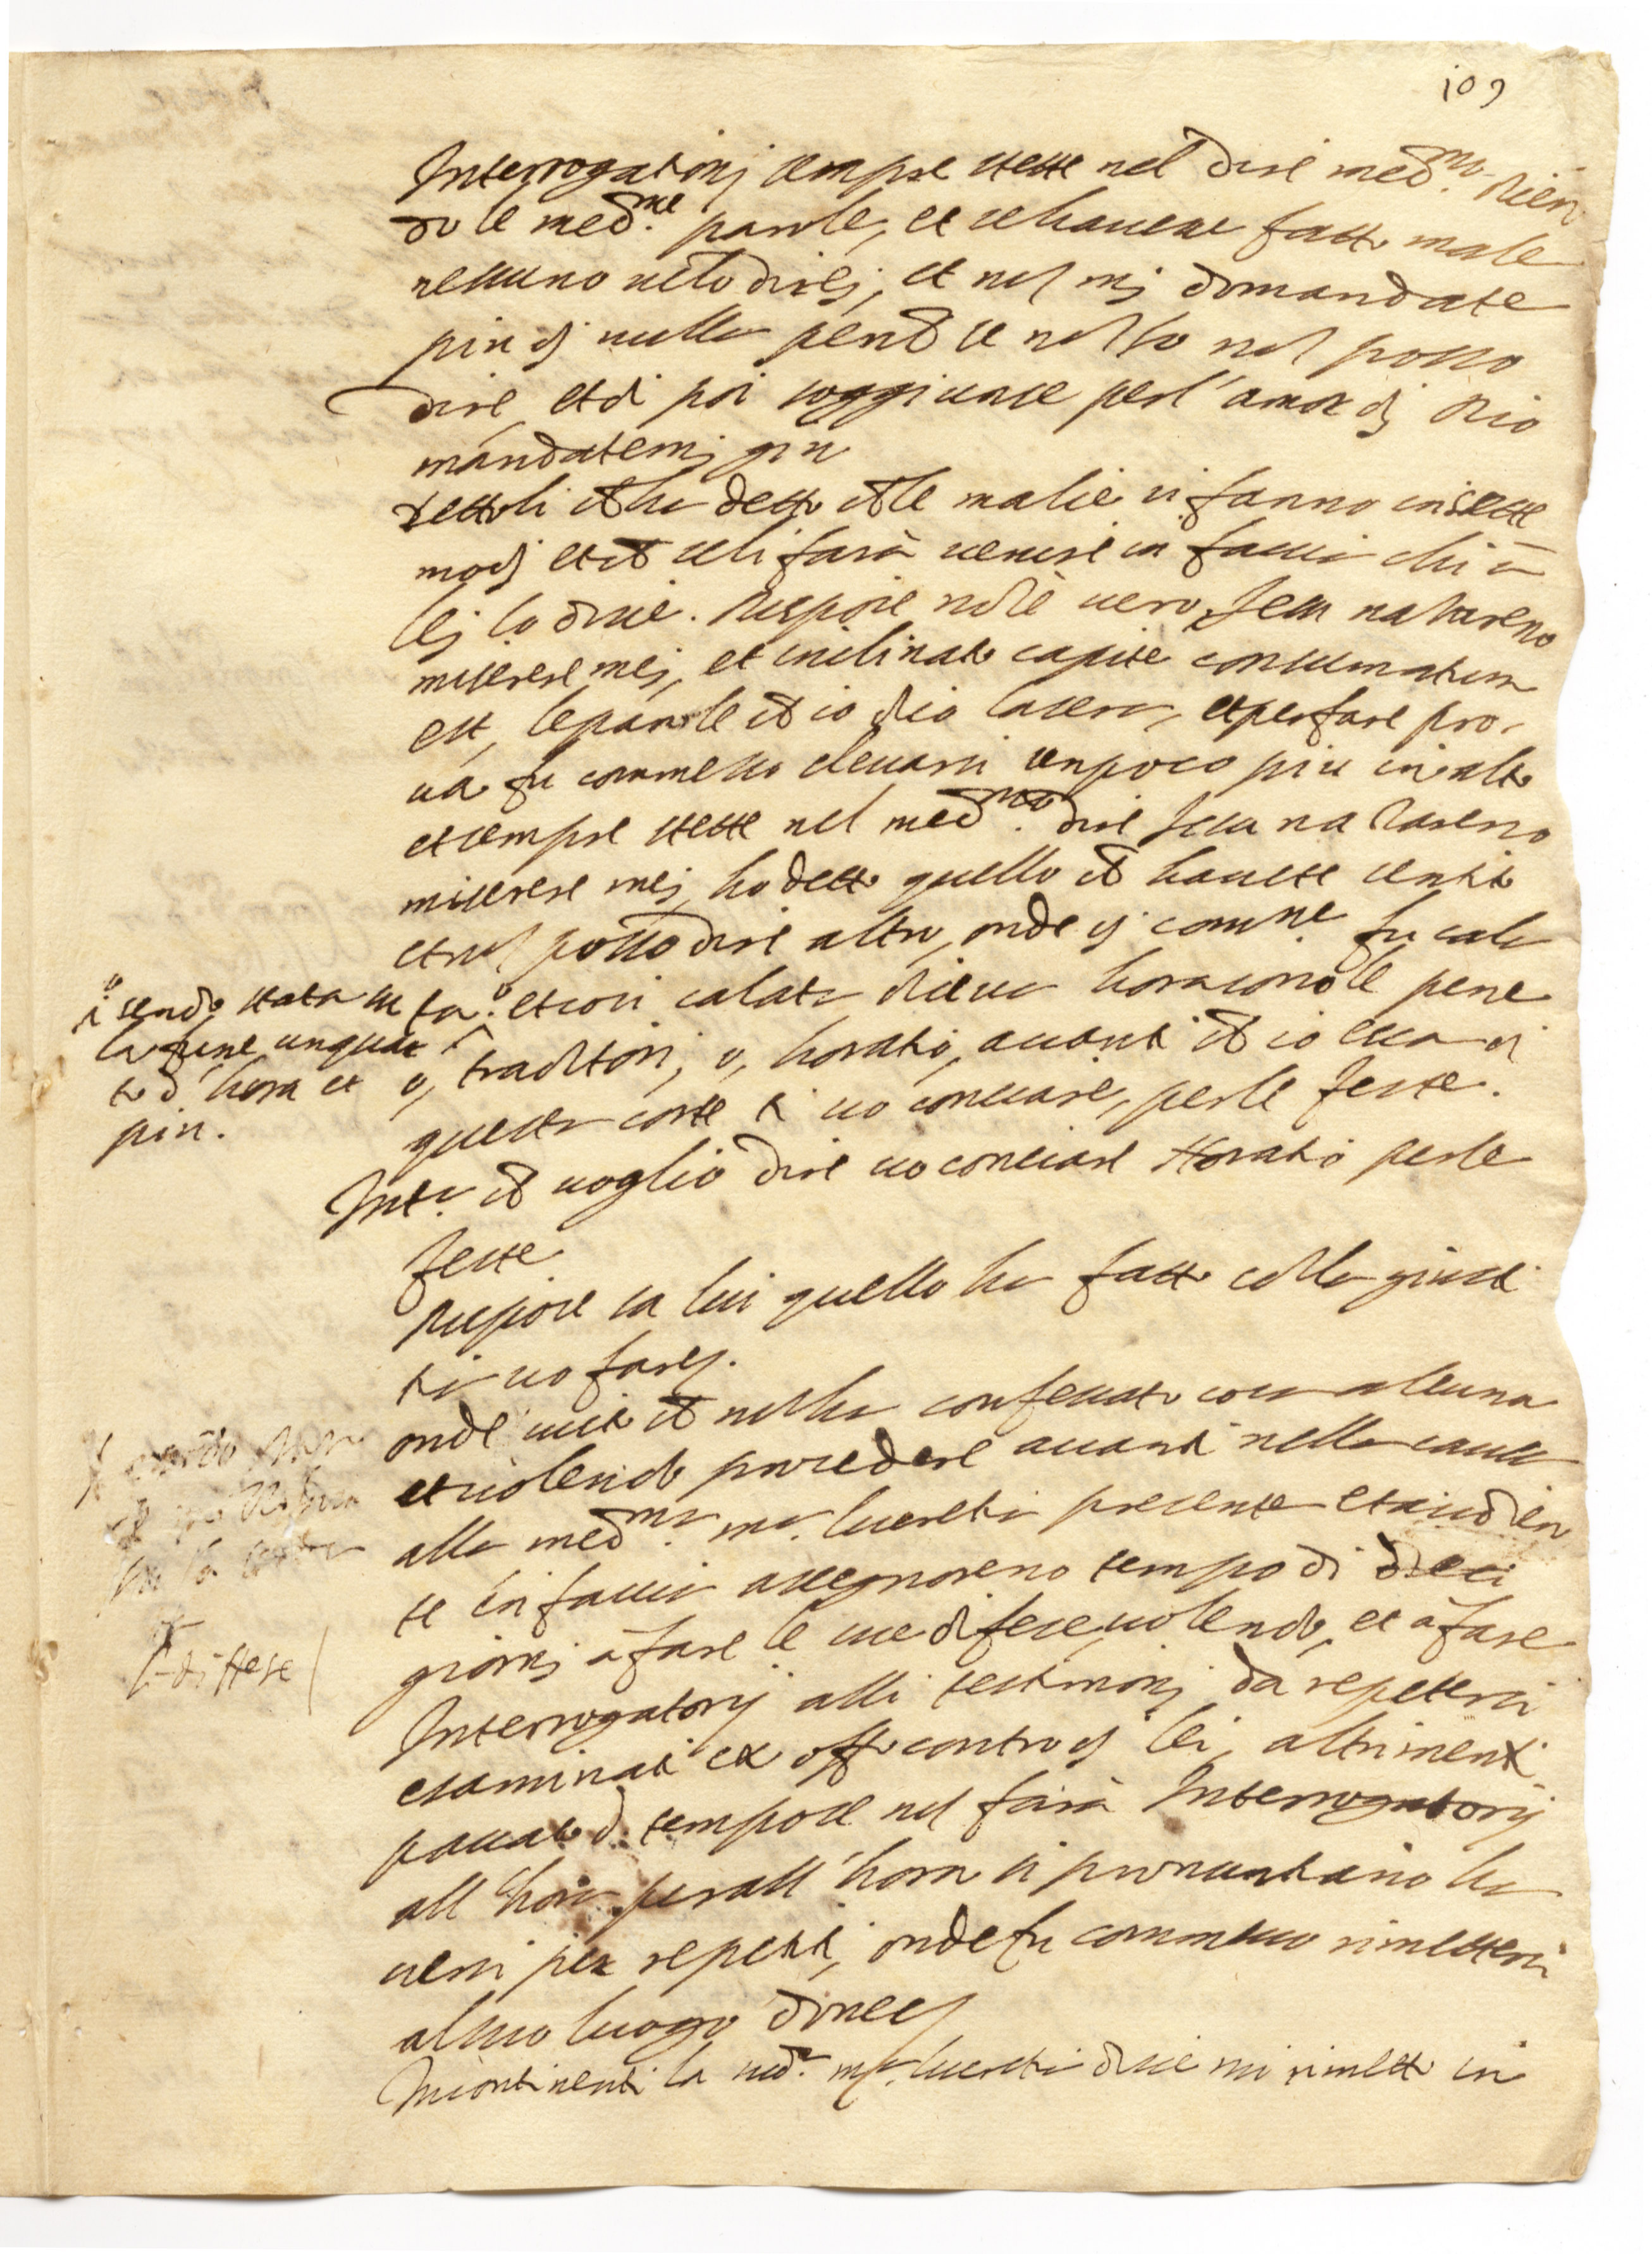 109
Interrogationj sempre stette nel dire med.mo dicen
do le med.me parole, et se havesse fatto male
nessuno ve lo direi, et nol mi domandate
piu di nulla perche se nol so nol posso
dire, et di poi soggiunse per l'amor di Dio
mandatemj giu
dettoli che ha detto che le malie si fanno in sette
modj et che seli farà venire in faccia chi a
lej lo disse. Rispose nò è vero Jesu nazareno
miserere mej, et inclinato capite consumatum
est, le parole che io dico lasera, et per fare pro,
va fu commesso elevarsi un poco piu in alto
et sempre stette nel med.mo dire Jesu nazareno
miserere mej, ho detto quello che havete sentito
et nol posso dire altro, onde di comm.ne fu cala
ta. et cosi calata diceva hora sono le pene
o, traditori, o, horatio, avanti che io esca di
questa corte ti vo conciare, per le feste.
i sendo stata su
la fune un quar
to d'hora et
piu.
Int.a che voglio dire vo conciare Horatio per le
feste
Rispose sa lui quello ha fatto colla giusti
tia vo fare.
onde visto che nolla confessato cosa alcuna
et volendo procedere avanti nella causa
alla med.ma m.a lucretia presente et audien
te in faccia assegnoreno tempo di dieci
giornj à fare le sue difese volendo, et à fare
Interrogatorij alli testimonj da repetersi
esaminati ex off.o contro di lei, altrimenti
passato d. tempo se nol farà Interrogatorij
all'hora per all'hora si pronuntiano ha
versi per repetiti, onde fu commesso rimettersi
al suo luogo donec
le difese
Incontinenti la med.a m.a lucretia disse mi rimetto in